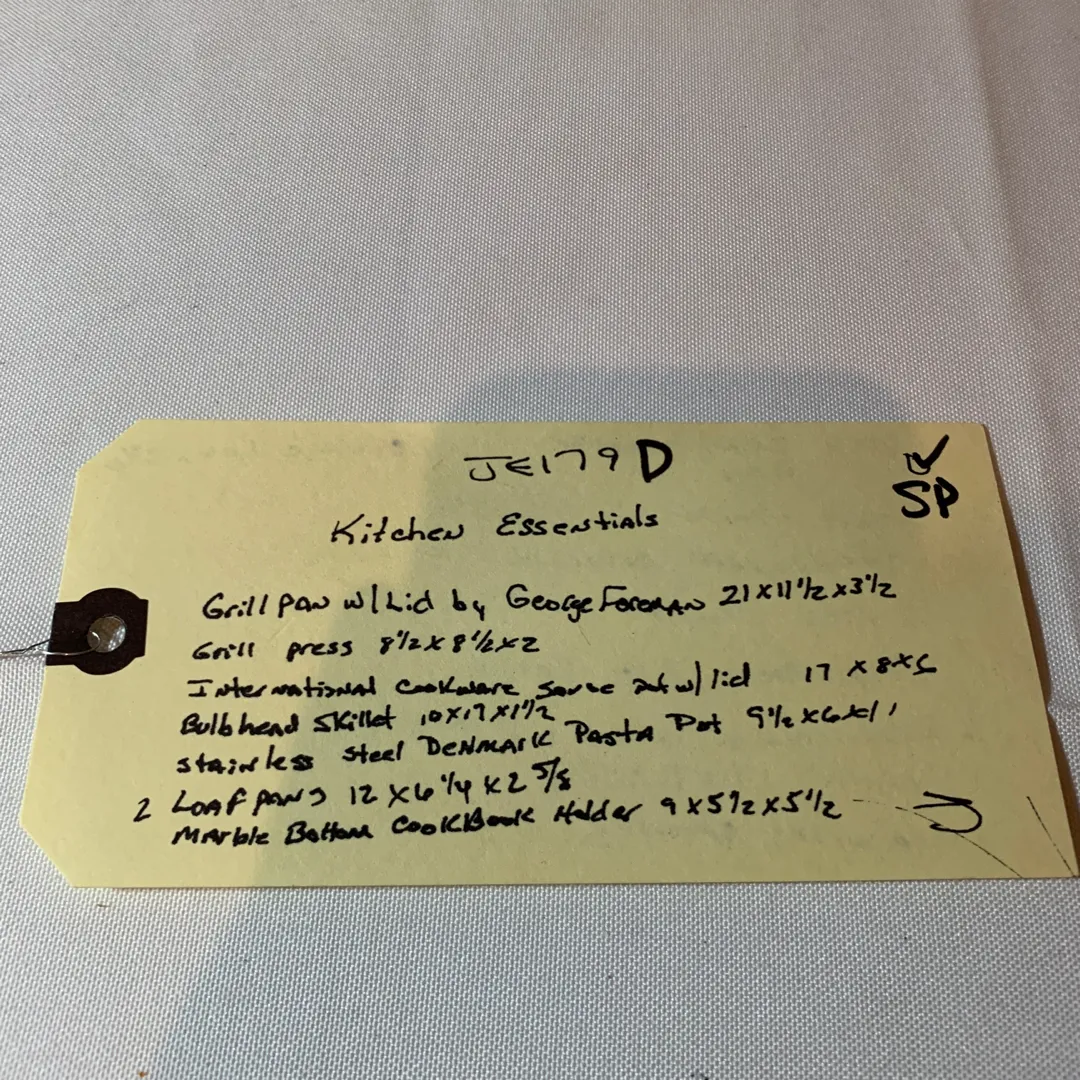 JE179 D
✓
SP
Kitchen Essentials
Grill pan w/Lid by George Foreman 21 x 11 1/2 x 3 1/2
Grill press 8 1/2 x 8 1/2 x 2
International Cookware sauce pot w/ lid 17 x 8 x
Bulbhead Skillet 10 x 17 x 1 1/2
Stainless Steel DENMARK Pasta Pot 9 1/2 x 6 x 11
2 Loaf pans 12 x 6 1/4 x 2 5/8
Marble Bottom CookBook Holder 9 x 5 1/2 x 5 1/2